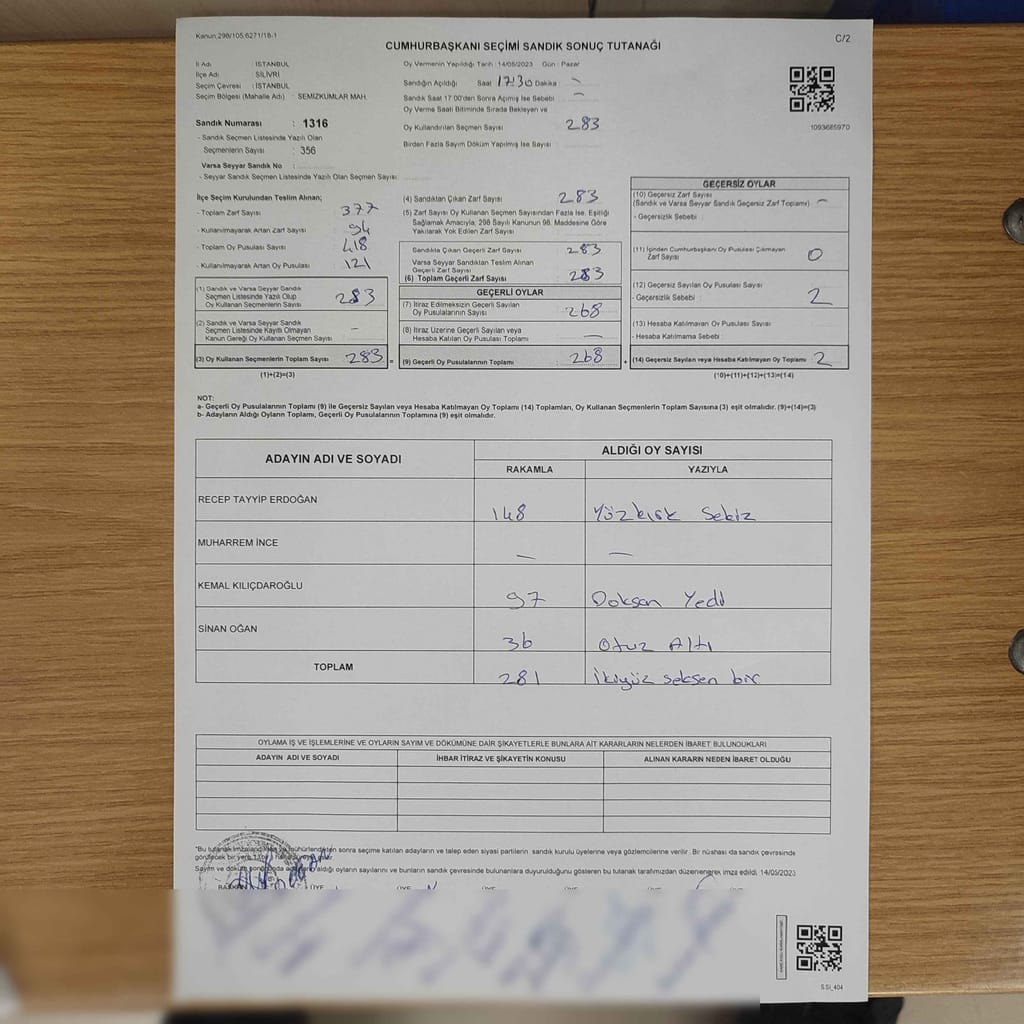 Kanun,298/105,6271/18-1
C/2
CUMHURBAŞKANI SEÇİMİ SANDIK SONUÇ TUTANAĞI
İl Adı : İSTANBUL
İlçe Adı : SİLİVRİ
Seçim Çevresi : İSTANBUL
Seçim Bölgesi (Mahalle Adı) : SEMİZKUMLAR MAH.
Sandık Numarası : 1316
- Sandık Seçmen Listesinde Yazılı Olan
Seçmenlerin Sayısı : 356
Varsa Seyyar Sandık No :
- Seyyar Sandık Seçmen Listesinde Yazılı Olan Seçmen Sayısı:
Oy Vermenin Yapıldığı Tarih : 14/05/2023 Gün : Pazar
Sandığın Açıldığı Saat 17:30 Dakika : -
Sandık Saat 17:00'den Sonra Açılmış İse Sebebi : -
Oy Verme Saati Bitiminde Sırada Bekleyen ve
Oy Kullandırılan Seçmen Sayısı : 283
Birden Fazla Sayım Döküm Yapılmış İse Sayısı :
1093685970
İlçe Seçim Kurulundan Teslim Alınan;
- Toplam Zarf Sayısı : 377
- Kullanılmayarak Artan Zarf Sayısı : 94
- Toplam Oy Pusulası Sayısı : 418
- Kullanılmayarak Artan Oy Pusulası : 121
(1) Sandık ve Varsa Seyyar Sandık
Seçmen Listesinde Yazılı Olup
Oy Kullanan Seçmenlerin Sayısı : 283
(2) Sandık ve Varsa Seyyar Sandık
Seçmen Listesinde Kayıtlı Olmayan
Kanun Gereği Oy Kullanan Seçmen Sayısı : -
(3) Oy Kullanan Seçmenlerin Toplam Sayısı : 283 =
(1)+(2)=(3)
(4) Sandıktan Çıkan Zarf Sayısı : 283
(5) Zarf Sayısı Oy Kullanan Seçmen Sayısından Fazla İse, Eşitliği
Sağlamak Amacıyla; 298 Sayılı Kanunun 98. Maddesine Göre
Yakılarak Yok Edilen Zarf Sayısı :
Sandıkta Çıkan Geçerli Zarf Sayısı : 283
Varsa Seyyar Sandıktan Teslim Alınan
Geçerli Zarf Sayısı :
(6) Toplam Geçerli Zarf Sayısı : 283
GEÇERLİ OYLAR
(7) İtiraz Edilmeksizin Geçerli Sayılan
Oy Pusulalarının Sayısı : 268
(8) İtiraz Üzerine Geçerli Sayılan veya
Hesaba Katılan Oy Pusulası Toplamı : -
(9) Geçerli Oy Pusulalarının Toplamı : 268 +
GEÇERSİZ OYLAR
(10) Geçersiz Zarf Sayısı
(Sandık ve Varsa Seyyar Sandık Geçersiz Zarf Toplamı) : -
- Geçersizlik Sebebi :
(11) İçinden Cumhurbaşkanı Oy Pusulası Çıkmayan
Zarf Sayısı : 0
(12) Geçersiz Sayılan Oy Pusulası Sayısı :
- Geçersizlik Sebebi : 2
(13) Hesaba Katılmayan Oy Pusulası Sayısı :
- Hesaba Katılmama Sebebi :
(14) Geçersiz Sayılan veya Hesaba Katılmayan Oy Toplamı : 2
(10)+(11)+(12)+(13)=(14)
NOT:
a- Geçerli Oy Pusulalarının Toplamı (9) ile Geçersiz Sayılan veya Hesaba Katılmayan Oy Toplamı (14) Toplamları, Oy Kullanan Seçmenlerin Toplam Sayısına (3) eşit olmalıdır. (9)+(14)=(3)
b- Adayların Aldığı Oyların Toplamı, Geçerli Oy Pusulalarının Toplamına (9) eşit olmalıdır.
ADAYIN ADI VE SOYADI
ALDIĞI OY SAYISI
RAKAMLA YAZIYLA
RECEP TAYYİP ERDOĞAN 148 Yüzkırk Sekiz
MUHARREM İNCE - -
KEMAL KILIÇDAROĞLU 97 Doksan Yedi
SİNAN OĞAN 36 Otuz Altı
TOPLAM 281 İkiyüz seksen bir
OYLAMA İŞ VE İŞLEMLERİNE VE OYLARIN SAYIM VE DÖKÜMÜNE DAİR ŞİKAYETLERLE BUNLARA AİT KARARLARIN NELERDEN İBARET BULUNDUKLARI
ADAYIN ADI VE SOYADI İHBAR İTİRAZ VE ŞİKAYETİN KONUSU ALINAN KARARIN NEDEN İBARET OLDUĞU
sonra seçime katılan adayların ve talep eden siyasi partilerin, sandık kurulu üyelerine veya gözlemcilerine verilir. Bir nüshası da sandık çevresinde
aldığı oyların sayılarını ve bunların sandık çevresinde bulunanlara duyurulduğunu gösteren bu tutanak tarafımızdan düzenlenerek imza edildi. 14/05/2023
BAŞKAN ÜYE ÜYE ÜYE ÜYE ÜYE
S.Sİ_404